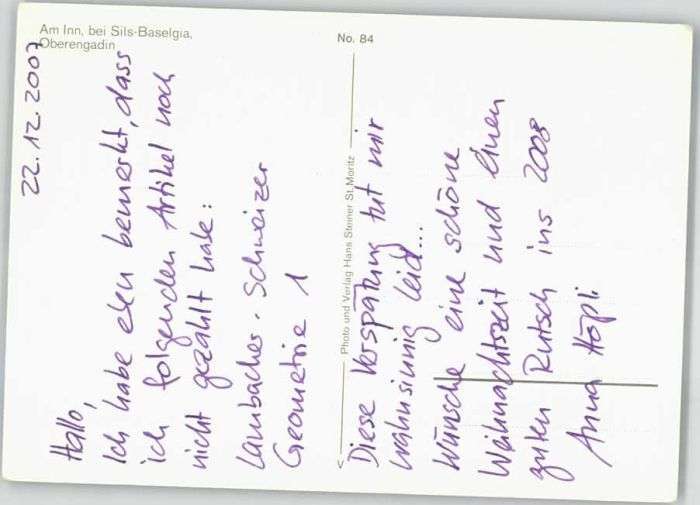 Am Inn, bei Sils-Baselgia,
Oberengadin
No. 84
Photo und Verlag Hans Steiner St. Moritz
22.12.2007
Hallo,
Ich habe eben bemerkt, dass
ich folgenden Artikel noch
nicht gezahlt habe:
Lambacher-Schweizer
Geometrie 1
Diese Verspätung tut mir
wahnsinnig leid...
Wünsche eine schöne
Weihnachtszeit und einen
guten Rutsch ins 2008
Anna Höpli